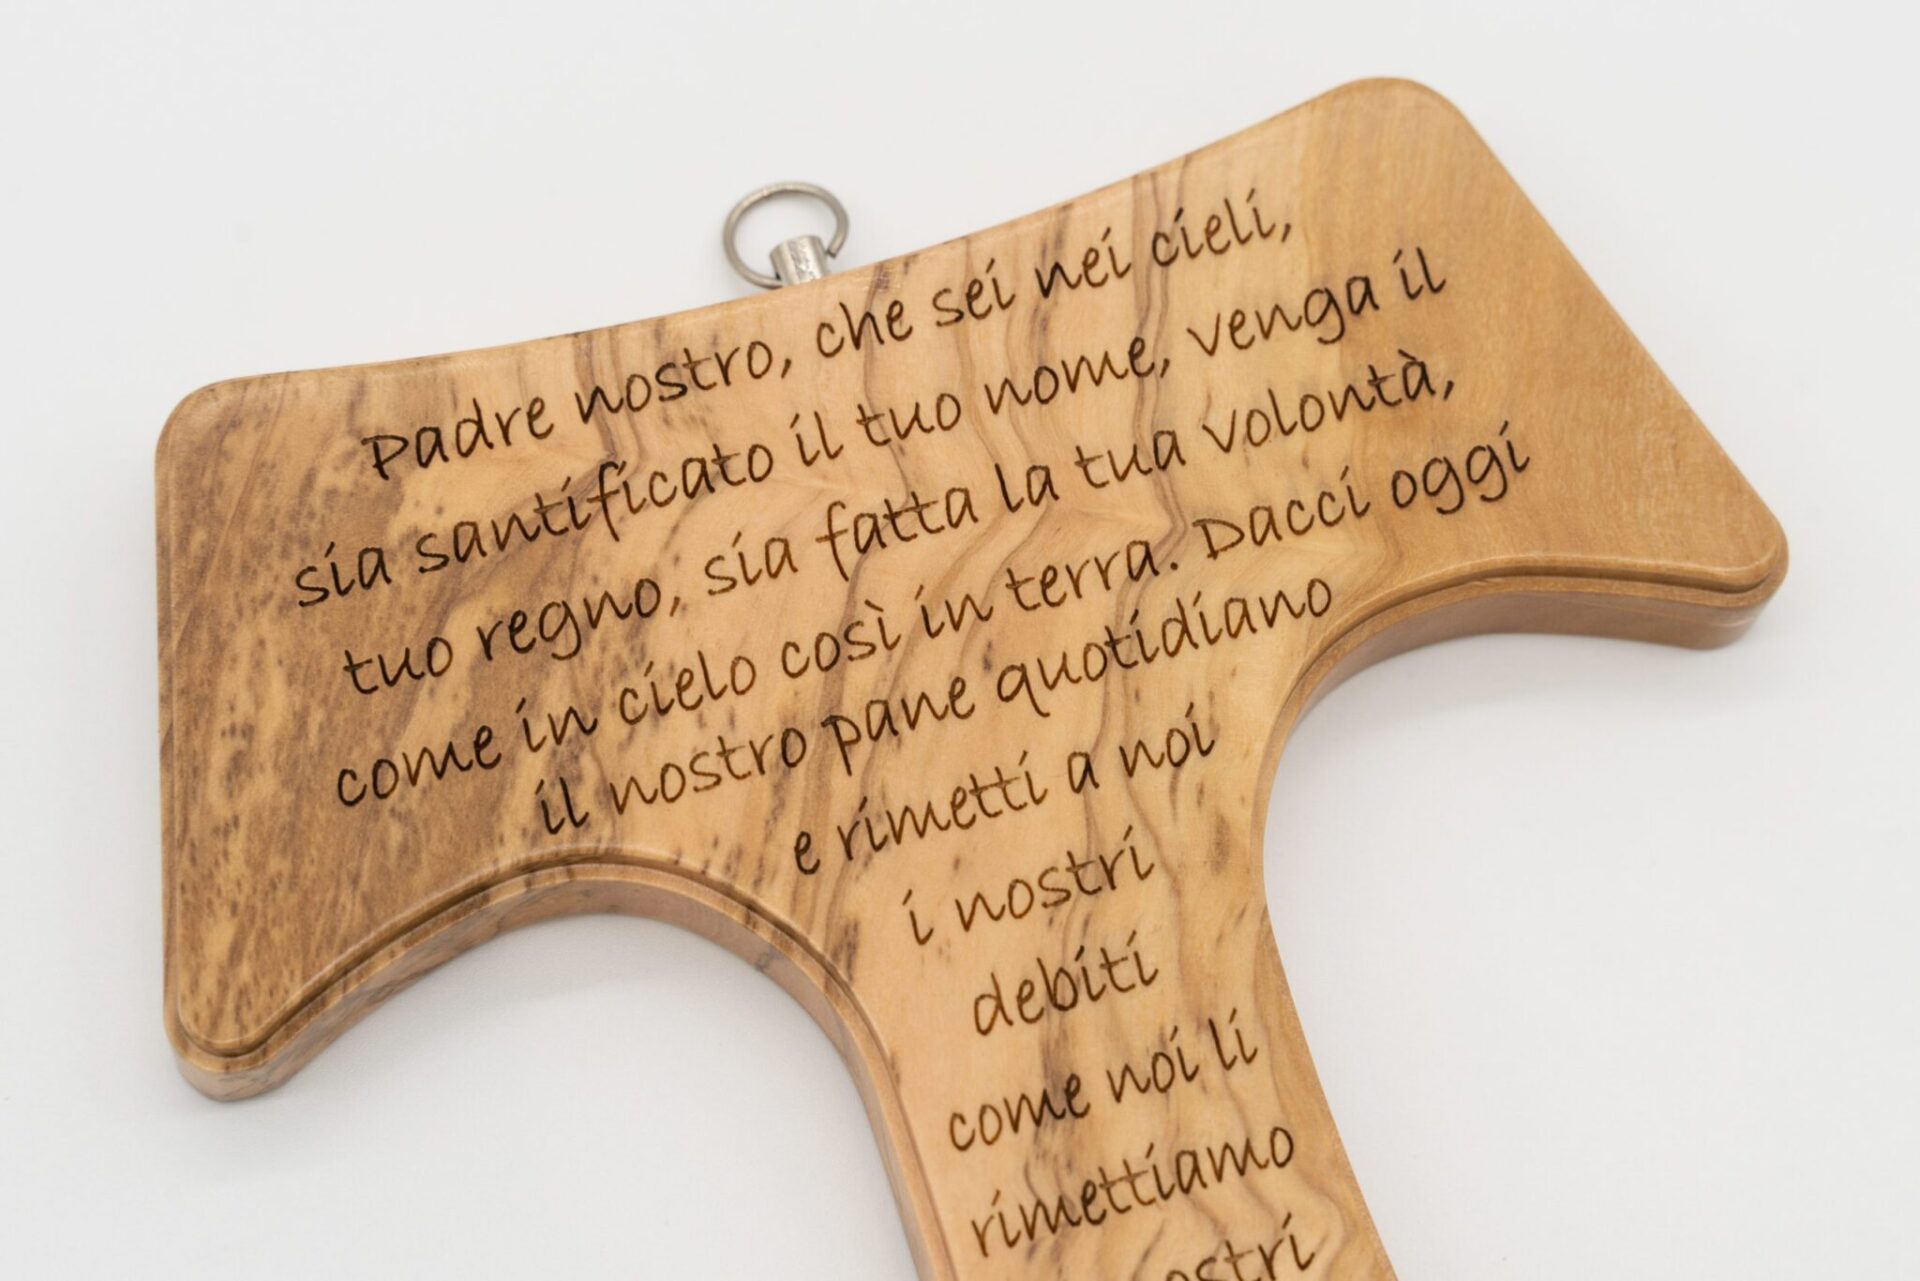 Padre nostro, che sei nei cieli,
sia santificato il tuo nome, venga il
tuo regno, sia fatta la tua volontà,
come in cielo così in terra. Dacci oggi
il nostro pane quotidiano
e rimetti a noi
i nostri
debiti
come noi li
rimettiamo